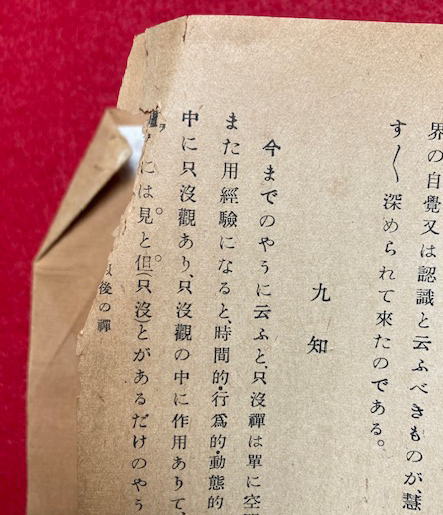 界の自覺又は認識と云ふべきものが、慧
す〳〵深められて來たのである。
九 知
今までのやうに云ふと、只沒禪は單に空
また用經驗になると、時間的・行爲的・動態的
中に只沒觀あり、只沒觀の中に作用ありて、
には見と但(只沒)とがあるだけのやう
以後の禪